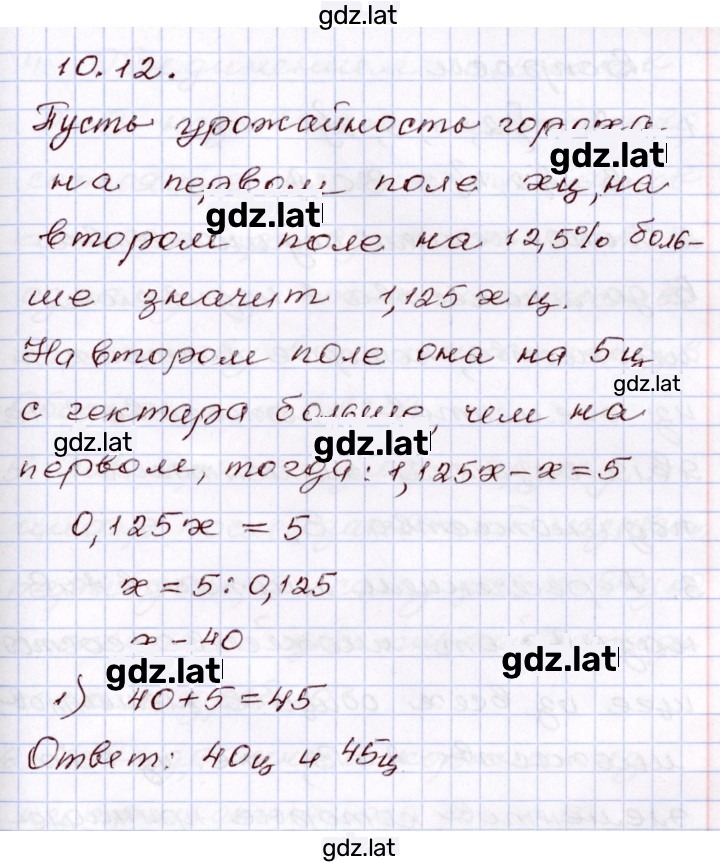 gdz.lat
10.12.
Пусть урожайность гороха
gdz.lat
на первом поле x ц, на
gdz.lat
втором поле на 12,5% боль-
ше значит 1,125x ц.
На втором поле она на 5 ц
gdz.lat
с гектара больше, чем на
gdz.lat gdz.lat
первом, тогда: 1,125x - x = 5
0,125x = 5
x = 5 : 0,125
x = 40
gdz.lat gdz.lat
1) 40 + 5 = 45
Ответ: 40ц и 45ц
gdz.lat